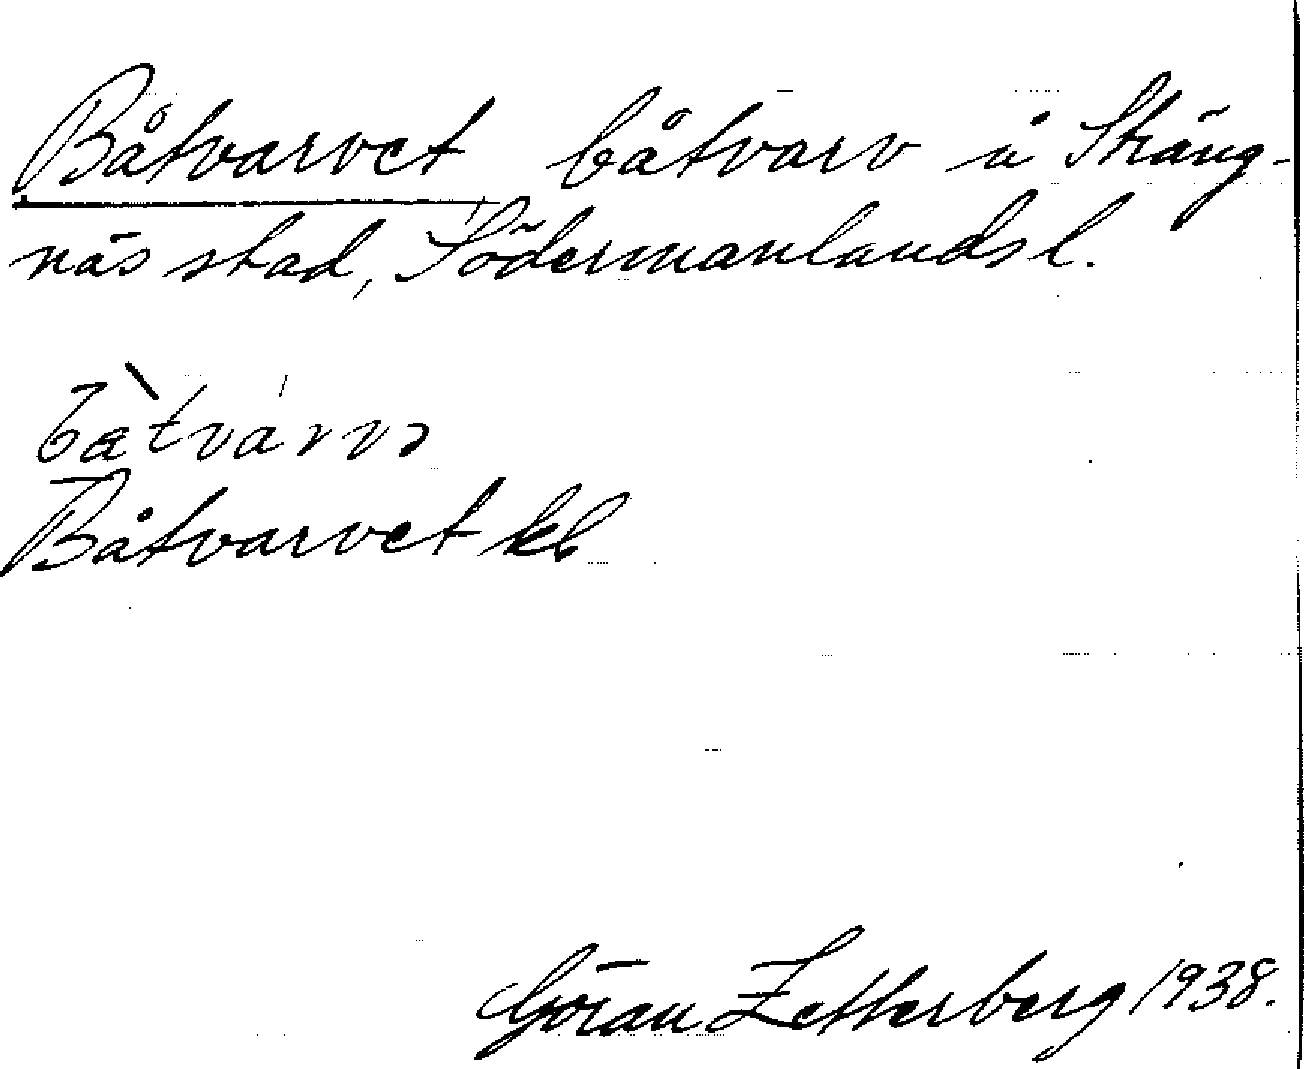 Båtvarvet båtvarv i Sträng-
näs stad, Södermanlands l.
Båtvarvet kb
Göran Zetterberg 1938.